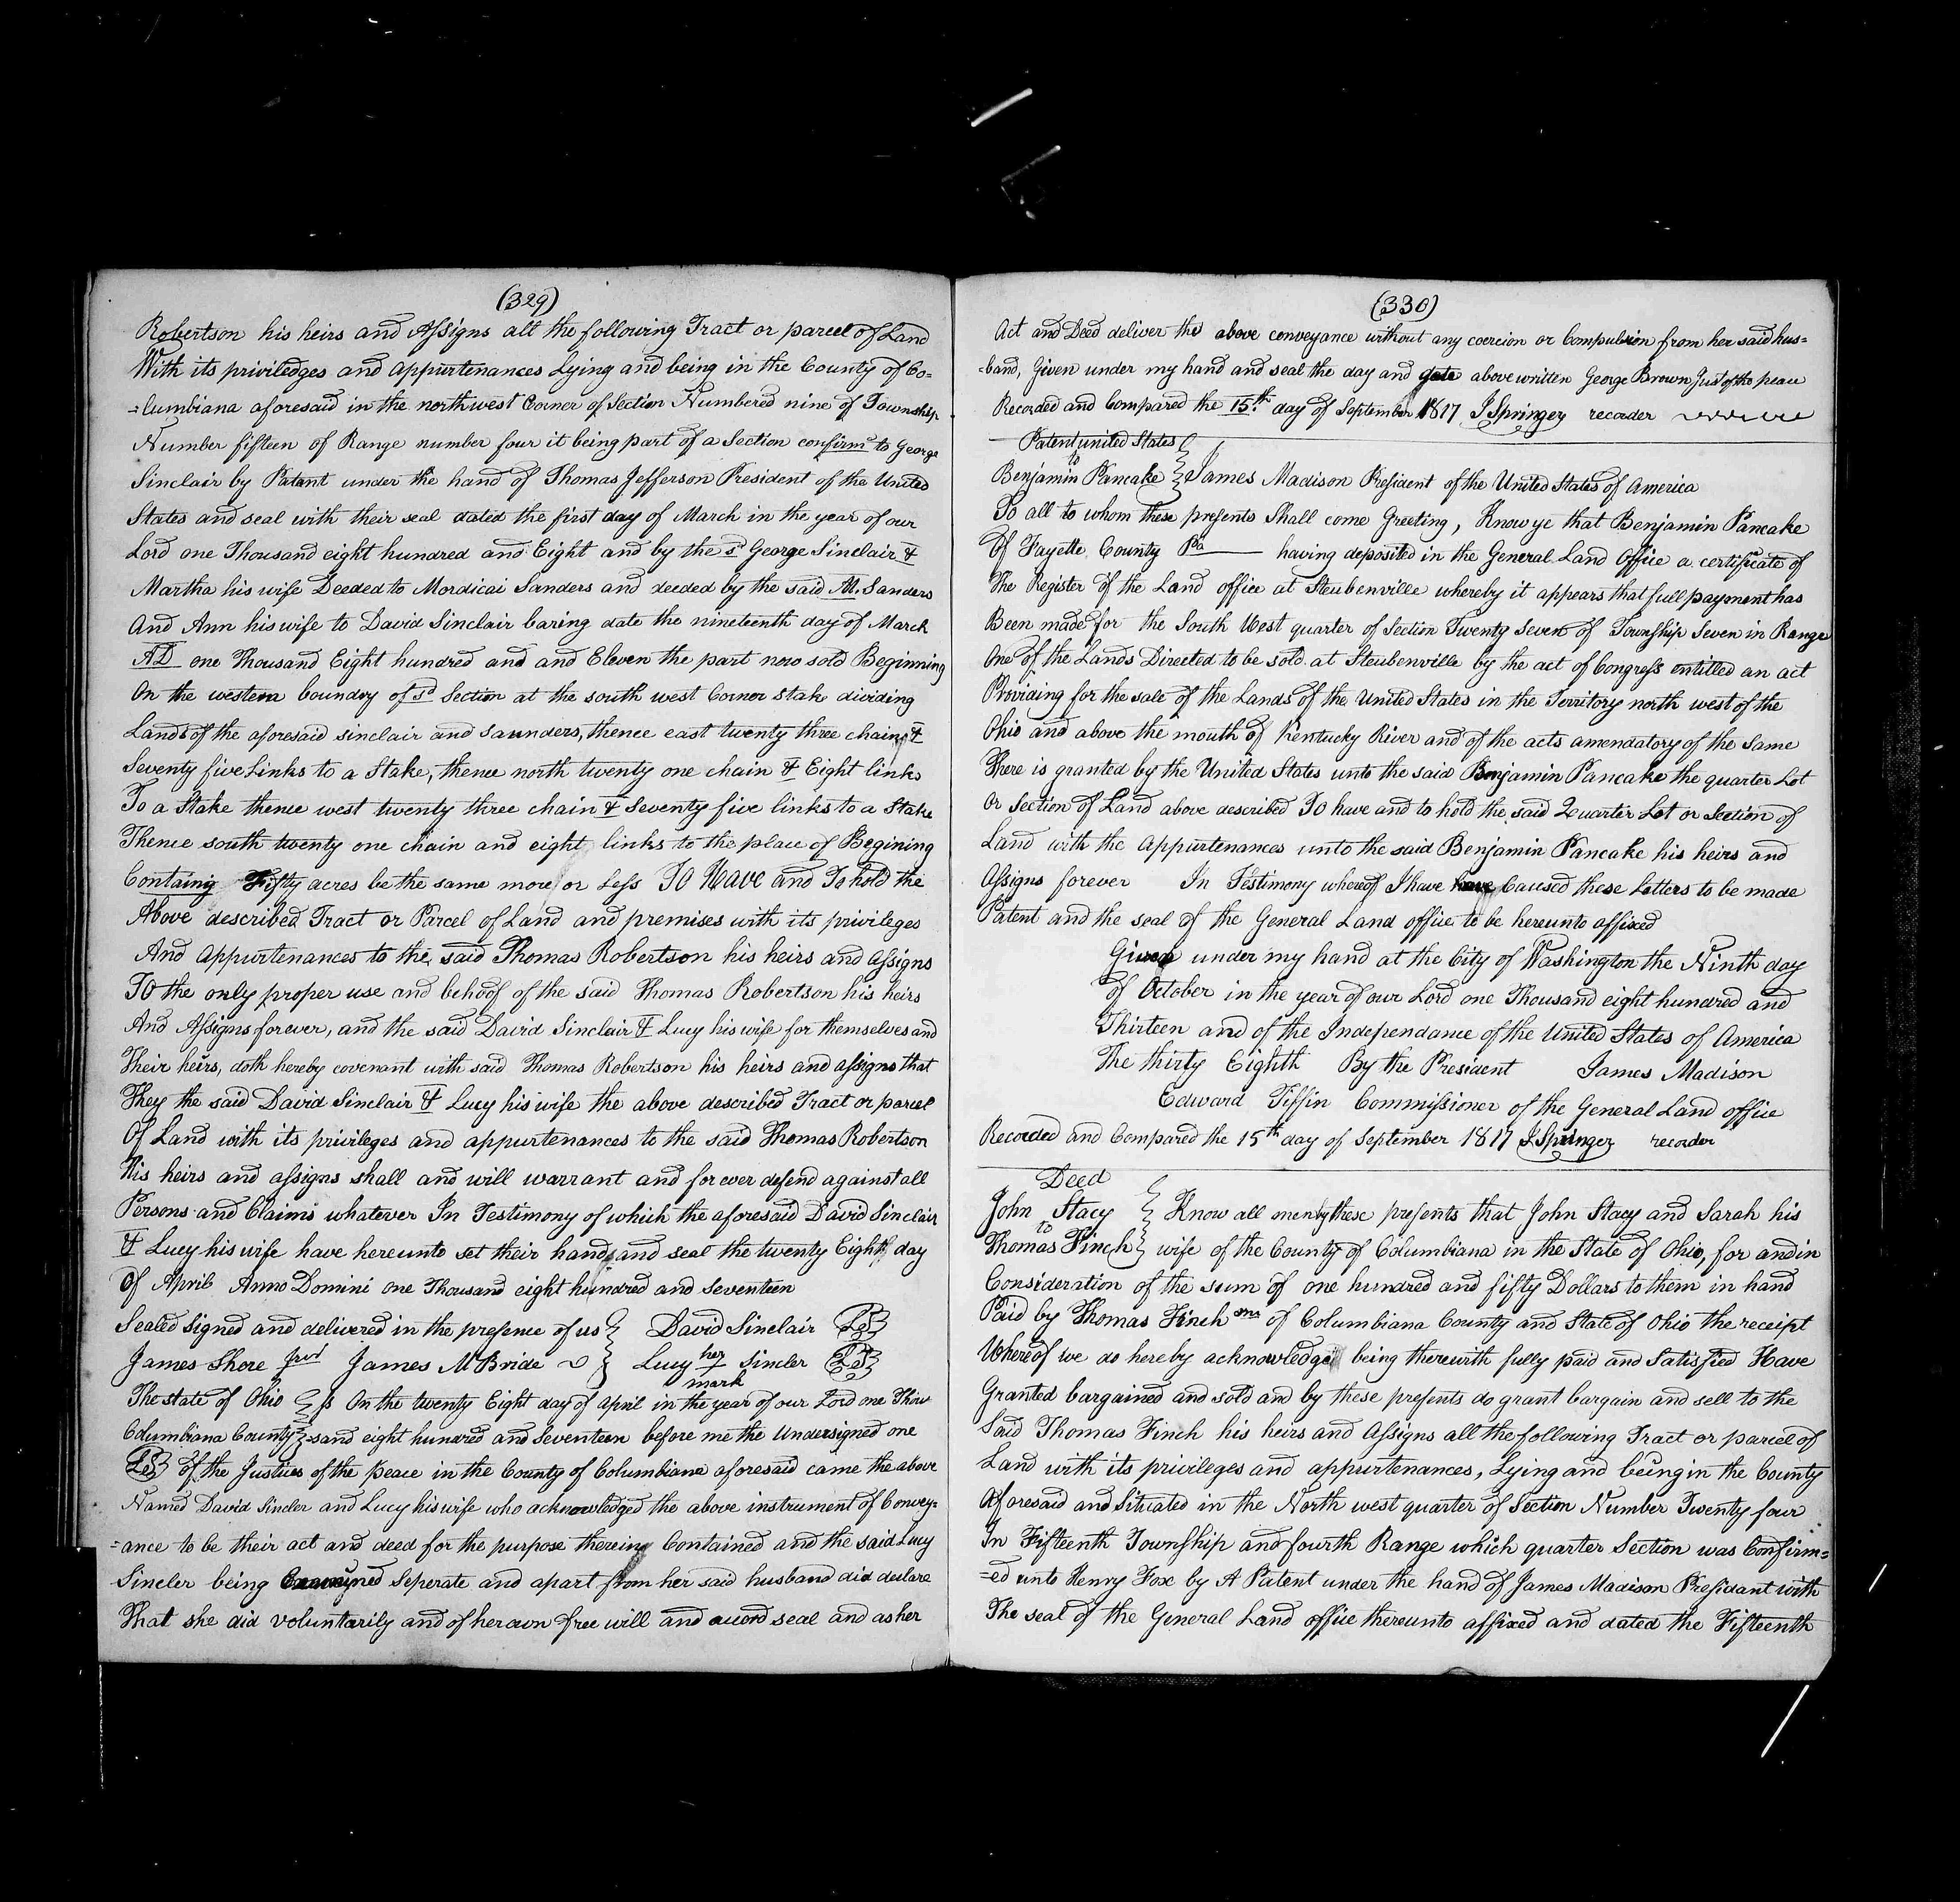 (329)
Robertson his heirs and Assigns all the following Tract or parcel of Land
With its priviledges and appurtenances Lying and being in the County of Co=
=lumbiana aforesaid in the northwest Corner of Section Numbered nine of Township
Number fifteen of Range number four it being part of a Section confirmd to George
Sinclair by Patant under the hand of Thomas Jefferson President of the United
States and seal with their seal dated the first day of March in the year of our
Lord one Thousand eight hundred and Eight and by the sd George Sinclair &
Martha his wife Deeded to Mordicai Sanders and deeded by the said M. Sanders
And Ann his wife to David Sinclair baring date the nineteenth day of March
AD one Thousand Eight hundred and and Eleven the part now sold Beginning
On the western boundry of sd Section at the south west Corner stake dividing
Lands of the aforesaid sinclair and saunders, thence east twenty three chain &
Seventy five Links to a Stake, thence north twenty one chain & Eight links
To a Stake thence west twenty three chain & seventy five links to a Stake
Thence south twenty one chain and eight links to the place of Begining
Containg Fifty acres be the same more or Less To Have and To hold the
Above described Tract or Parcel of Land and premises with its privileges
And appurtenances to the said Thomas Robertson his heirs and assigns
TO the only proper use and behoof of the said Thomas Robertson his heirs
And Assigns forever, and the said David Sinclair & Lucy his wife for themselves and
Their heirs, doth hereby covenant with said Thomas Robertson his heirs and assigns that
They the said David Sinclair & Lucy his wife the above described Tract or parcel
Of Land with its privileges and appurtenances to the said Thomas Robertson
His heirs and assigns shall and will warrant and for ever defend against all
Persons and Claims whatever In Testimony of which the aforesaid David Sinclair
& Lucy his wife have hereunto set their hands and seal the twenty Eighth day
Of April Anno Domini one Thousand eight hundred and seventeen
Sealed Signed and delivered in the presence of us David Sinclair LS
James Shore James McBride Lucy her mark Sincler LS
The state of Ohio ss On the twenty Eight day of april in the year of our Lord one Thou
Columbiana County =sand eight hundred and Seventeen before me the Undersigned one
LS of the Justices of the peace in the County of Columbiana aforesaid came the above
Named David Sincler and Lucy his wife who acknowledged the above instrument of Convey=
=ance to be their act and deed for the purpose therein Contained and the said Lucy
Sincler being Examyned Seperate and apart from her said husband did declare
That she did voluntarily and of her own free will and accord seal and as her
(330)
Act and Deed deliver the above conveyance without any coercion or Compulsion from her said hus=
=band, Given under my hand and seal the day and date above written George Brown Just of the peace
Recorded and Compared the 15th day of September 1817 J Springer recorder
Patent united States
to
Benjamin Pancake James Madison President of the United States of America
To all to whom these presents Shall come Greeting, Know ye that Benjamin Pancake
Of Fayette County Pa having deposited in the General Land Office a certificate of
The Register of the Land office at Steubenville whereby it appears that full payment has
Been made for the South West quarter of Section Twenty Seven of Township Seven in Range
One of the Lands Directed to be sold at Steubenville by the act of Congress entitled an act
Providing for the sale of the Lands of the United States in the Territory north west of the
Ohio and above the mouth of Kentucky River and of the acts amendatory of the Same
There is granted by the United States unto the said Benjamin Pancake the quarter Lot
Or Section of Land above described To have and to hold the said Quarter Lot or Section of
Land with the appurtenances unto the said Benjamin Pancake his heirs and
Assigns forever In Testimony whereof I have have Caused these Letters to be made
Patent and the seal of the General Land office to be hereunto affixed
Given under my hand at the City of Washington the Ninth day
of October in the year of our Lord one Thousand eight hundred and
Thirteen and of the Independance of the United States of America
The thirty Eighth By the President James Madison
Edward Tiffin Commissioner of the General Land office
Recorded and Compared the 15th day of September 1817 J Springer recorder
Deed
John Stacy Know all men by these presents that John Stacy and Sarah his
to
Thomas Finch wife of the County of Columbiana in the State of Ohio, for and in
Consideration of the sum of one hundred and fifty Dollars to them in hand
Paid by Thomas Finch of Columbiana County and State of Ohio the receipt
Whereof we do hereby acknowledge being therewith fully paid and Satisfied Have
Granted bargained and sold and by these presents do grant bargain and sell to the
Said Thomas Finch his heirs and Assigns all the following Tract or parcel of
Land with its privileges and appurtenances, Lying and being in the County
Aforesaid and Situated in the North west quarter of Section Number Twenty four
In Fifteenth Township and fourth Range which quarter Section was Confirm=
=ed unto Henry Fox by A Patent under the hand of James Madison Presidant with
The seal of the General Land office thereunto affixed and dated the Fifteenth